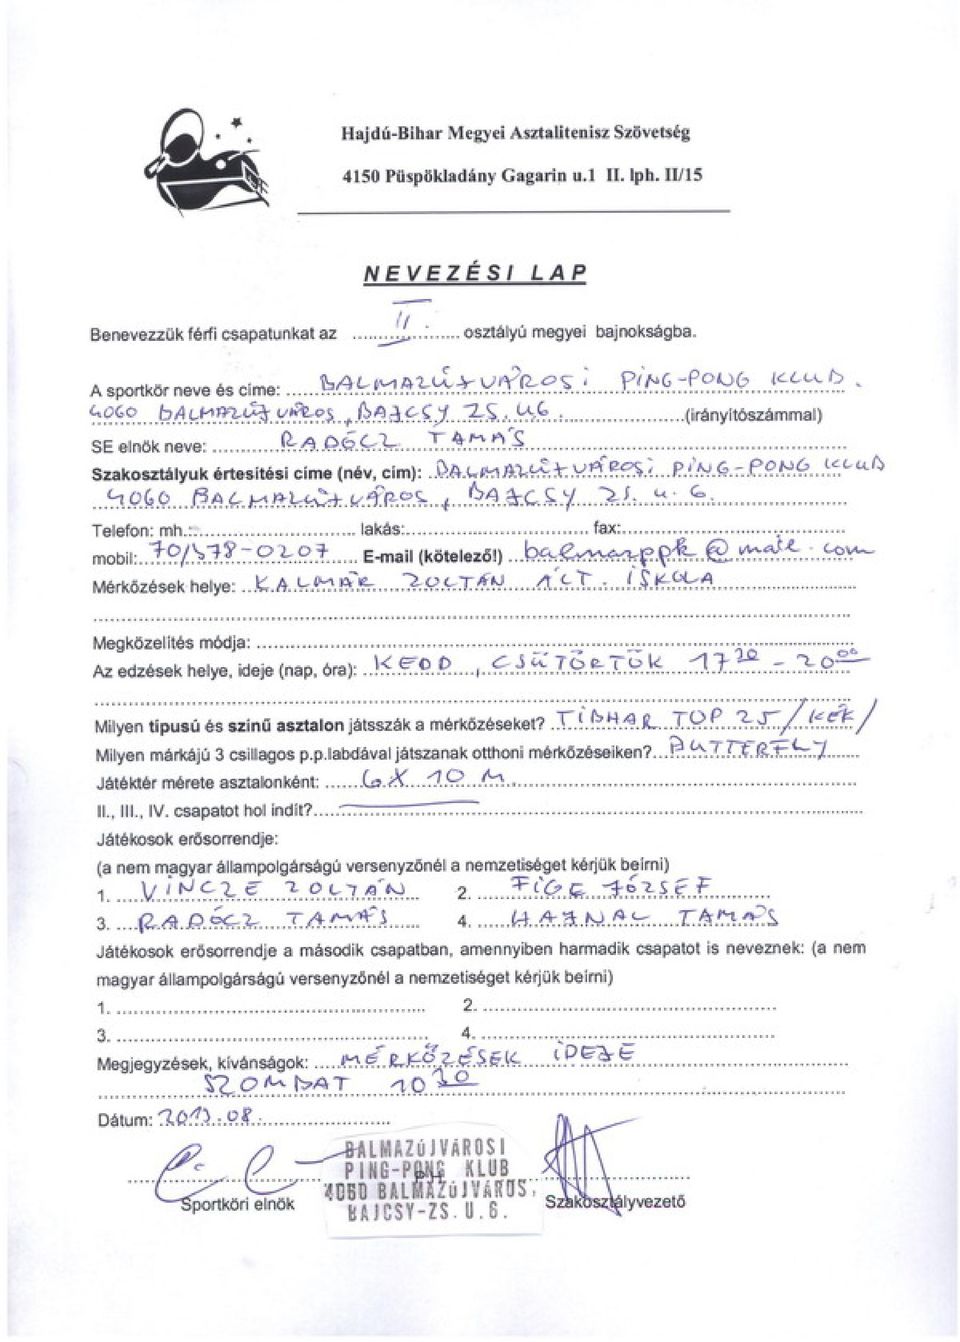 Hajdú-Bihar Megyei Asztalitenisz Szövetség
4150 Püspökladány Gagarin u.1 II. lph. II/15
NEVEZÉSI LAP
Benevezzük férfi csapatunkat az II. osztályú megyei bajnokságba.
A sportkör neve és címe: BALMAZÚJVÁROSI PING-PONG KLUB.
4060 BALMAZÚJVÁROS, BAJCSY ZS. U.6. (irányítószámmal)
SE elnök neve: RADÓCZ TAMÁS
Szakosztályuk értesítési címe (név, cím): BALMAZÚJVÁROSI PING-PONG KLUB
4060 BALMAZÚJVÁROS, BAJCSY ZS. u. 6.
Telefon: mh.: lakás: fax:
mobil: 70/578-0207 E-mail (kötelező!) balmazppk@ .com
Mérkőzések helye: KALMÁR ZOLTÁN ÁLT. ISKOLA
Megközelítés módja:
Az edzések helye, ideje (nap, óra): KEDD, CSÜTÖRTÖK 17 30 - 20 00
Milyen típusú és színű asztalon játsszák a mérkőzéseket? TIBHAR TOP 25 /KÉK/
Milyen márkájú 3 csillagos p.p.labdával játszanak otthoni mérkőzéseiken? BUTTERFLY
Játéktér mérete asztalonként: 6X 10 M.
II., III., IV. csapatot hol indít?
Játékosok erősorrendje:
(a nem magyar állampolgárságú versenyzőnél a nemzetiséget kérjük beírni)
1. VINCZE ZOLTÁN 2. FIGE JÓZSEF
3. RADÓCZ TAMÁS 4. HAJNAL TAMÁS
Játékosok erősorrendje a második csapatban, amennyiben harmadik csapatot is neveznek: (a nem
magyar állampolgárságú versenyzőnél a nemzetiséget kérjük beírni)
1. 2.
3. 4.
Megjegyzések, kívánságok: MÉRKŐZÉSEK IDEJE
SZOMBAT 10 30
Dátum: 2013.08.
BALMAZÚJVÁROSI
PING-PONG KLUB
4060 BALMAZÚJVÁROS,
BAJCSY-ZS.U.6.
Sportköri elnök Szakosztályvezető